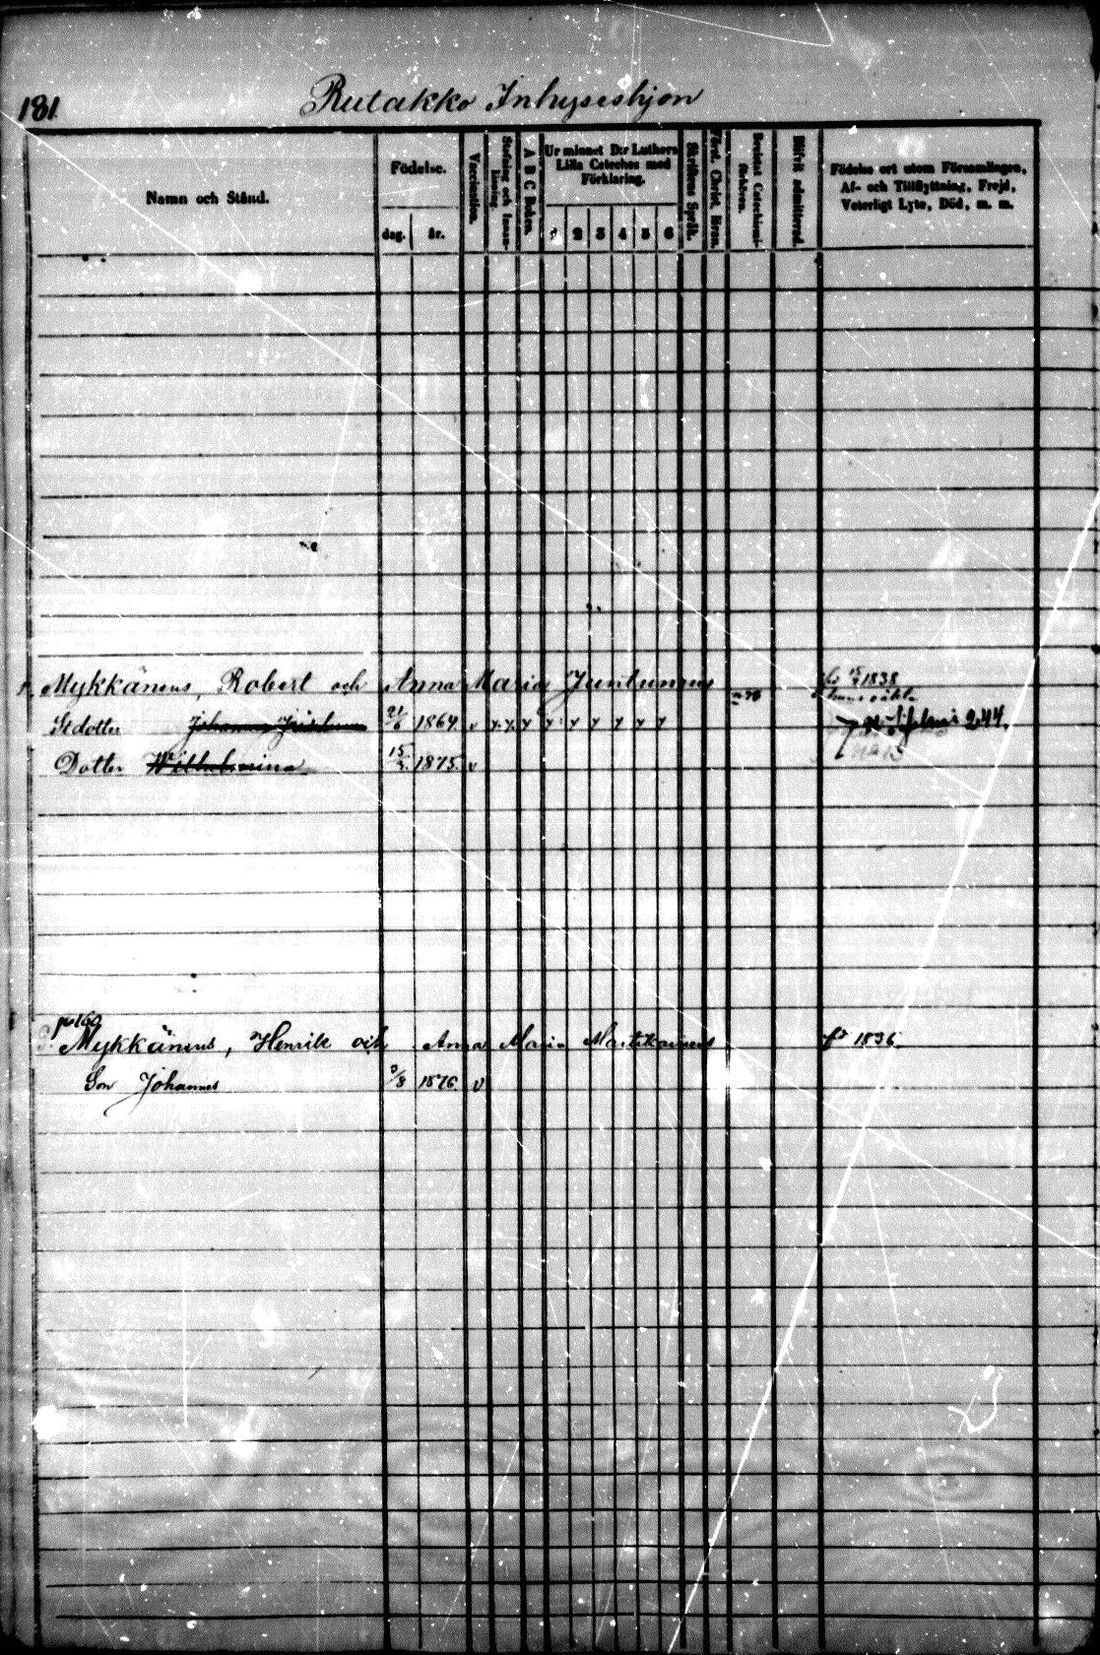 181
Rutakko Inhyseshjon
Namn och Stånd.
Födelse.
dag.
år.
Vaccination.
Stafning och Innanläsning.
A B C Boken.
Ur minnet D:r Luthers
Lilla Cateches med
Förklaring.
1 2 3 4 5 6
Skriftens Språk.
Först. Christ. Lären.
Bevistat Catechismi-förhören.
Blifvit admitterad.
Födelse ort utom Församlingen,
Af- och Tillflyttning, Frejd,
Veterligt Lyte, Död, m. m.
Mykkänens, Robert och Anna Maria Juntunens 1838
Stdotter Johanna 1864 v y. y. y y y y y y y 244.
Dotter Wilhelmina 15 1875 v
p 160
Mykkänens, Henrik och Anna Maria Martikainens fd 1836.
Son Johannes 1876 v